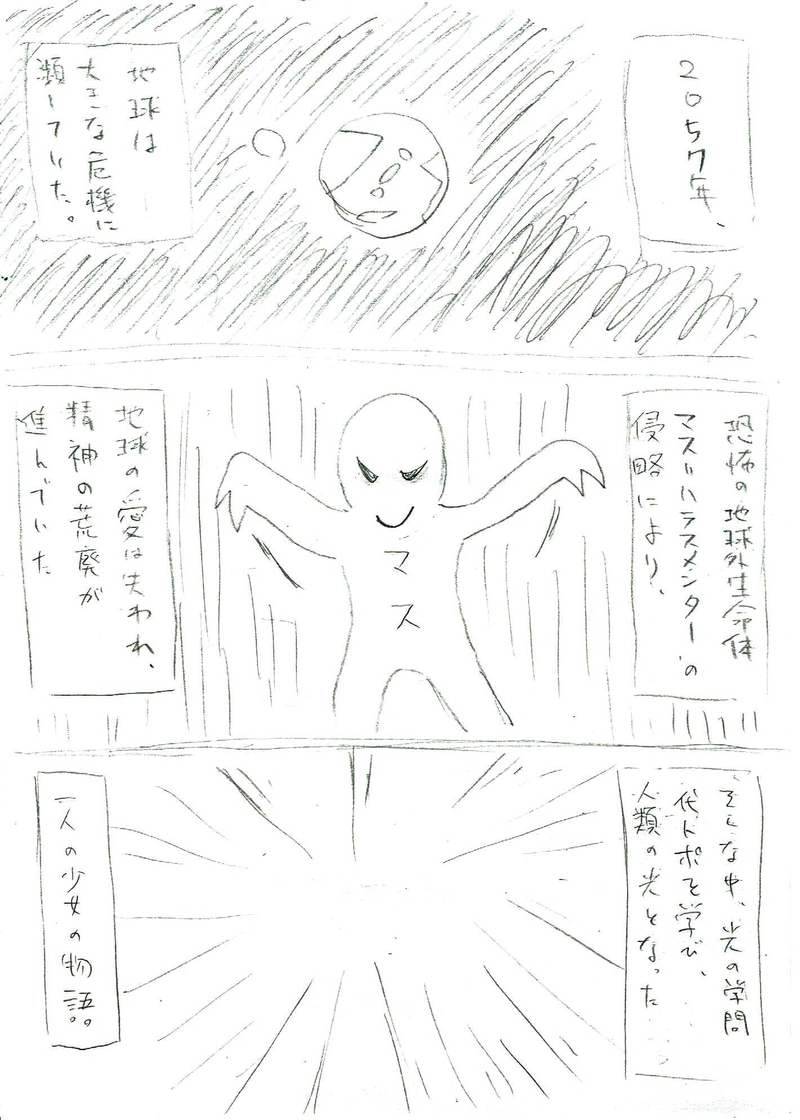 2057年、
地球は
大きな危機に
瀕していた。
恐怖の地球外生命体
マス=ハラスメンターの
侵略により、
マス
地球の愛は失われ、
精神の荒廃が
進んでいた
そんな中、光の学問
代トポを学び、
人類の光となった
一人の少女の物語。